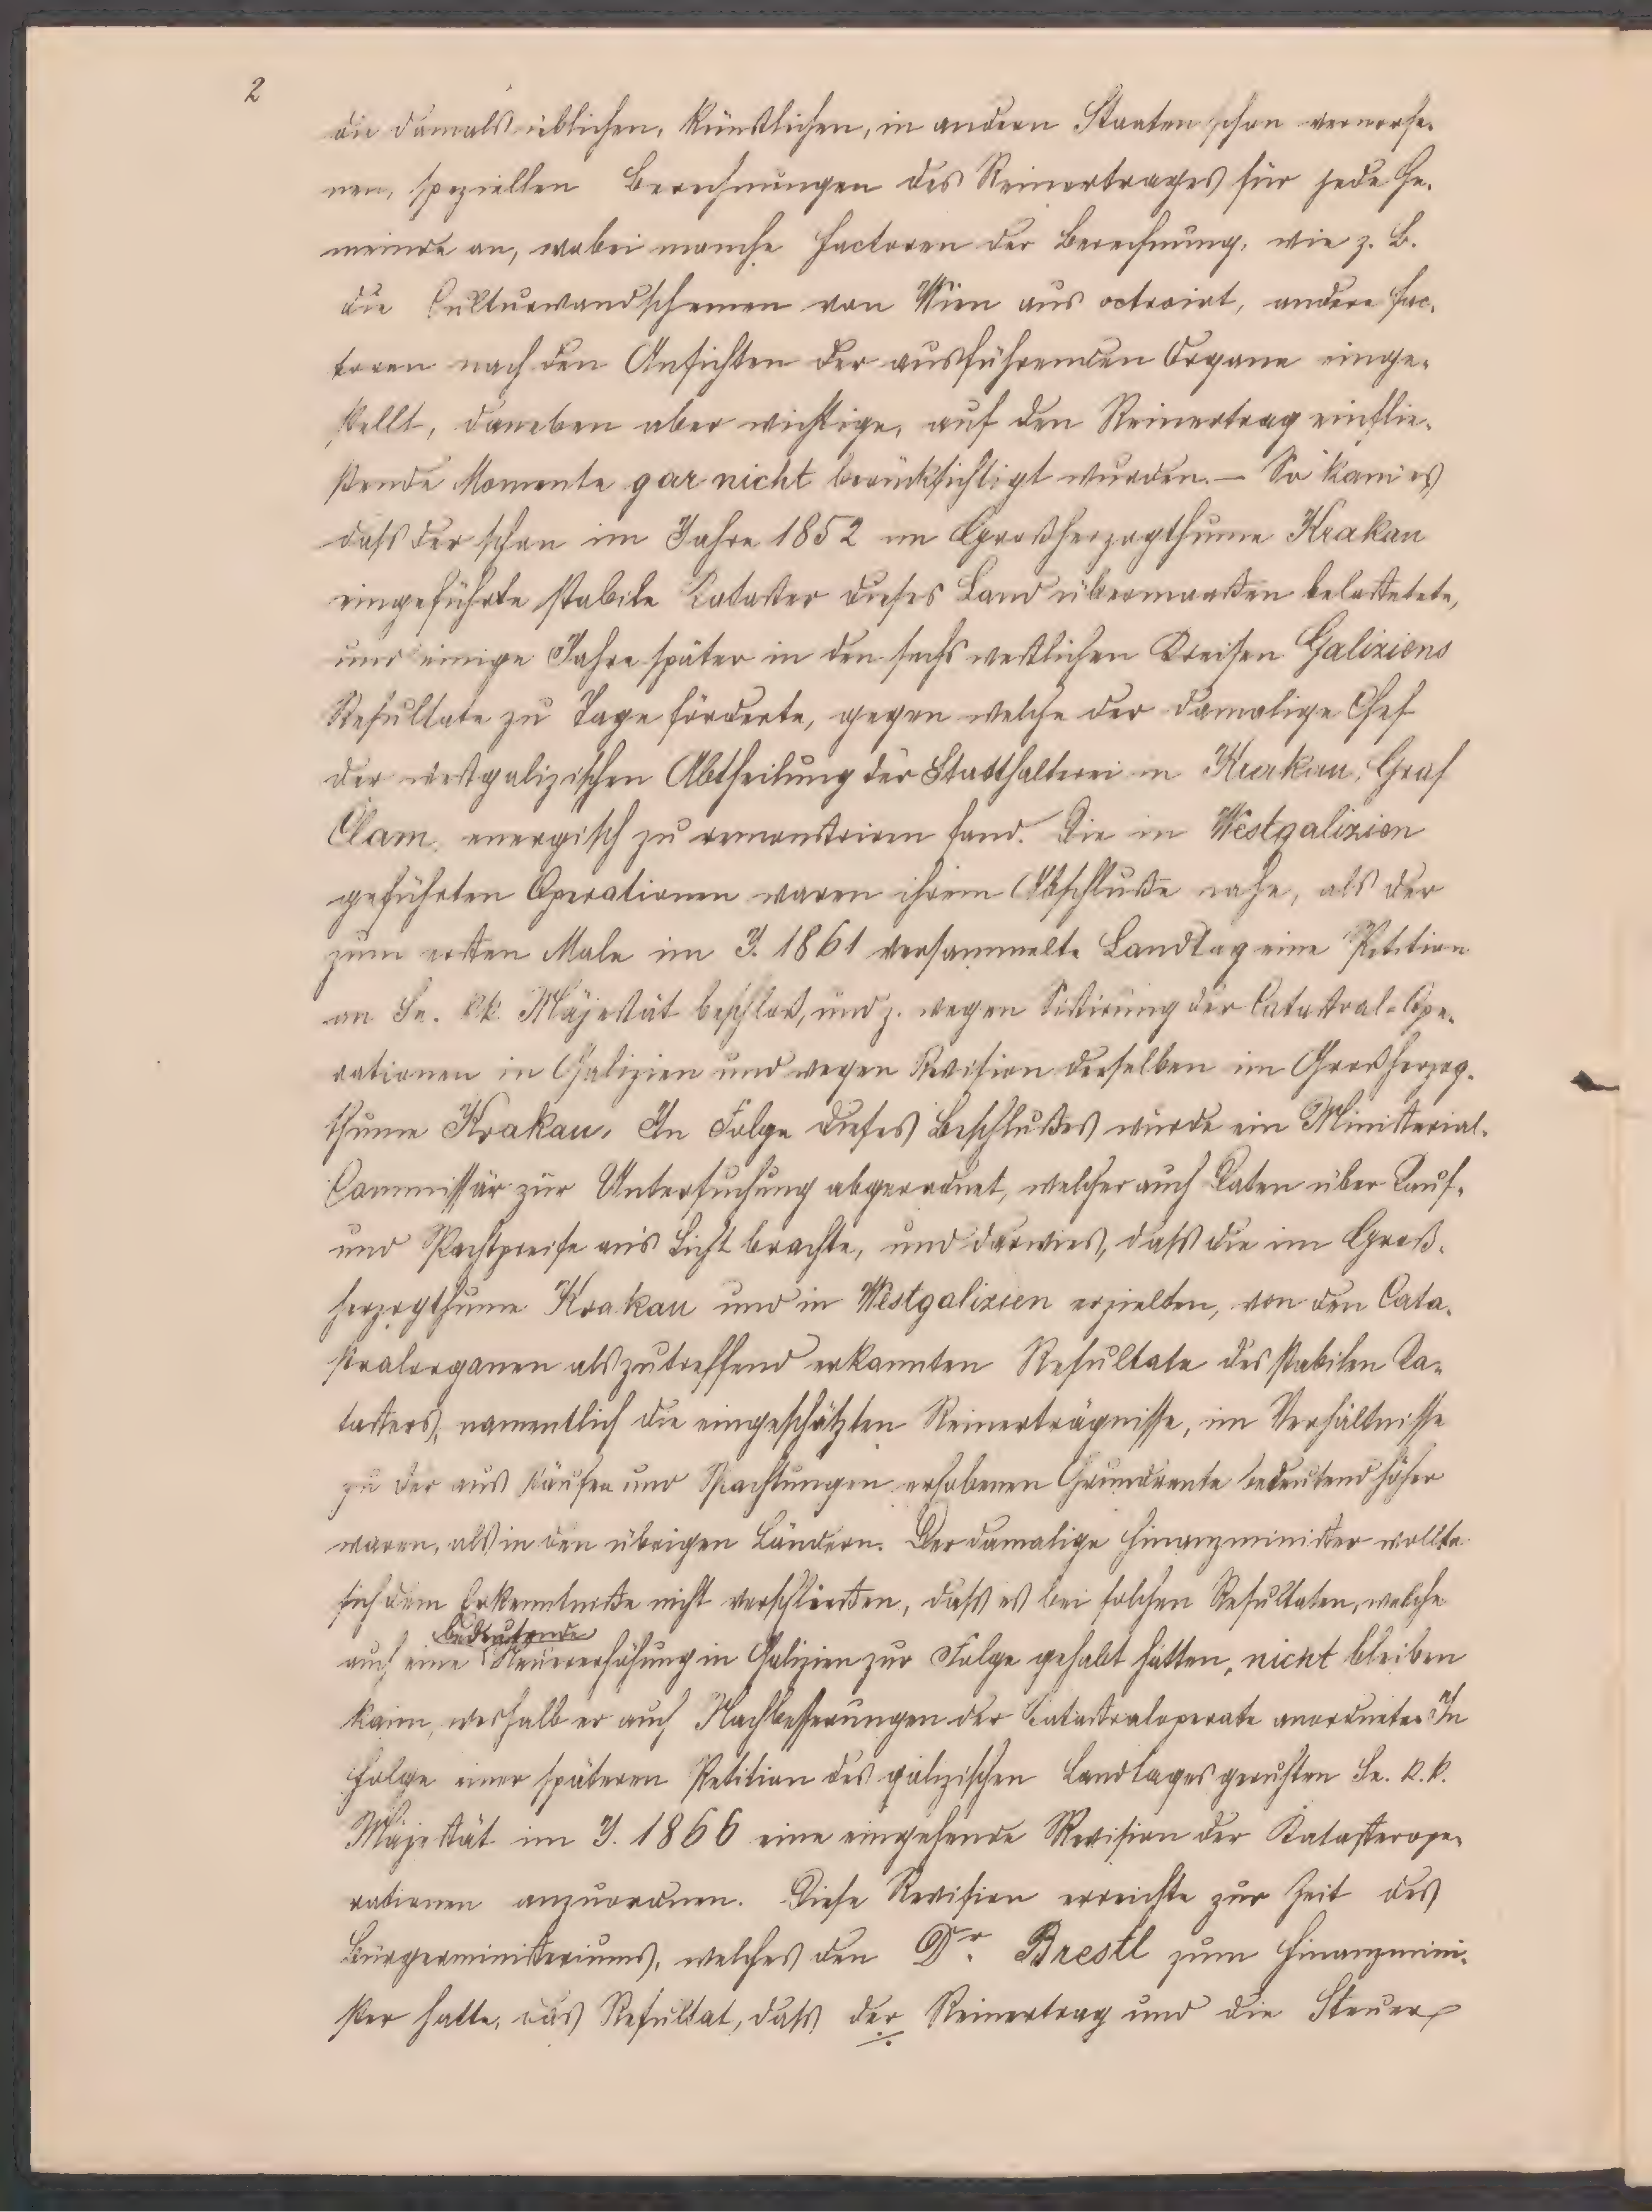 2
die damals üblichen, künstlichen, in andern Staaten schon verworfe-
nen, speziellen Berechnungen des Reinertrages für jede Ge-
meinde an, wobei manche Factoren der Berechnung, wie z. B.
die Culturwandschemen von Wien aus octroirt, andere Fac-
toren nach den Ansichten der ausführenden Organe einge-
stellt, daneben aber wichtige, auf den Reinertrag einflie-
ßende Momente gar nicht berücksichtigt wurden. – So kam es
daß der schon im Jahre 1852 im Großherzogthume Krakau
eingeführte stabile Cataster dieses Land übermaaßen belastetete,
und einige Jahre später in den sechs westlichen Kreisen Galiziens
Resultate zu Tage förderte, gegen welche der damalige Chef
der westgalizischen Abtheilung der Statthalterei in Krakau, Graf
Clam, energisch zu remonstriren fand. Die in Westgalizien
geführten Operationen waren ihrem Abschluße nahe, als der
zum ersten Male im J. 1861 versammelte Landtag eine Petition
an Se. k.k. Majestät beschloß, und z. wegen Sistirung der Catastral-Ope-
rationen in Galizien und wegen Revision derselben im Großherzog-
thume Krakau. In Folge dieses Beschlußes wurde ein Ministerial-
Commissär zur Untersuchung abgeordnet, welcher auch Daten über Kauf-
und Pachtpreise an's Licht brachte, und darwies, daß die im Groß-
herzogthume Krakau und in Westgalizien erzielten, von den Cata-
stralorganen als zutreffend erkannten Resultate des stabilen Ca-
tasters, namentlich die eingeschätzten Reinerträgnisse, im Verhältnisse
zu der aus Käufen und Pachtungen erhobenen Grundrente bedeutend höher
waren, als in den übrigen Ländern. Der damalige Finanzminister wollte
sich dem Erkenntniße nicht verschließen, daß es bei solchen Resultaten, welche
bedeutende
auch eine Steuererhöhung in Galizien zur Folge gehabt hätten, nicht bleiben
kann, weshalb er auch Nachbesserungen der Catastraloperate anordnete. In
Folge einer späteren Petition des galizischen Landtages geruhten Se. k.k.
Majestät im J. 1866 eine eingehende Revision der Katasterope-
rationen anzuordnen. Diese Revision erreichte zur Zeit des
Bürgerministeriums, welches den Dr. Brestl zum Finanzmini-
ster hatte, das Resultat, daß der Reinertrag und die Steuer